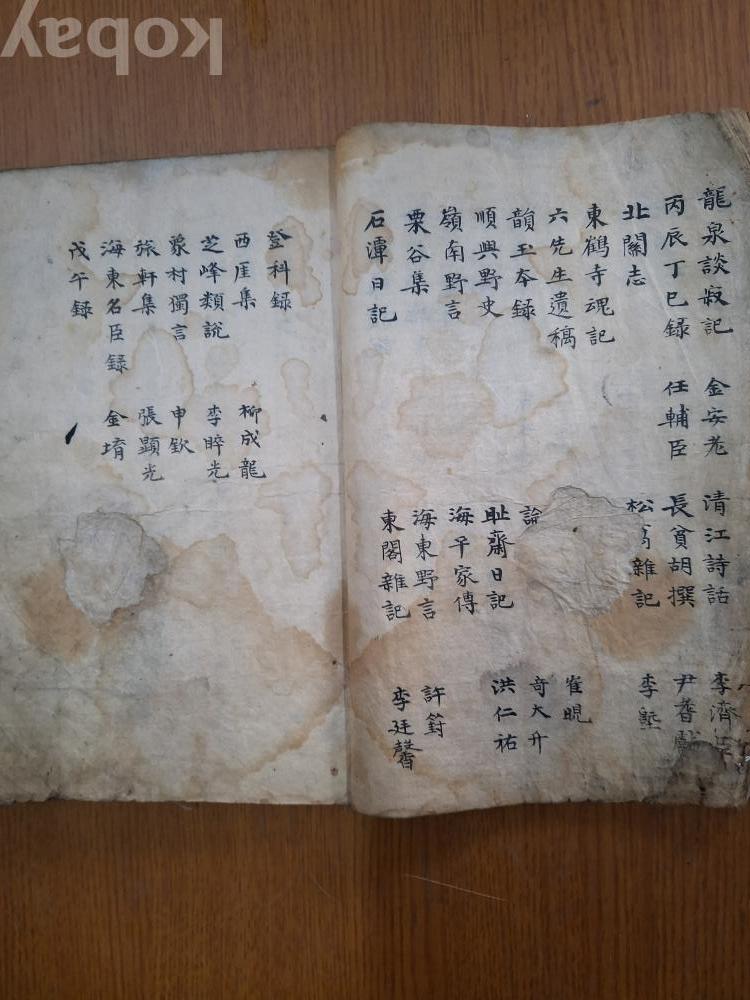 kobay
龍泉談寂記 金安老
丙辰丁巳錄 任輔臣
北關志
東鶴寺魂記
六先生遺稿
韻玉夲錄
順興野史
嶺南野言
栗谷集
石潭日記
清江詩話 李濟
長貧胡撰 尹耆獻
松 雜記 李塈
崔晛
論 奇大升
耻齋日記 洪仁祐
海平家傳
海東野言 許篈
東閣雜記 李廷馨
登科録
西厓集 柳成龍
芝峰類説 李睟光
象村獨言 申欽
旅軒集 張顯光
海東名臣録 金堉
戊午録